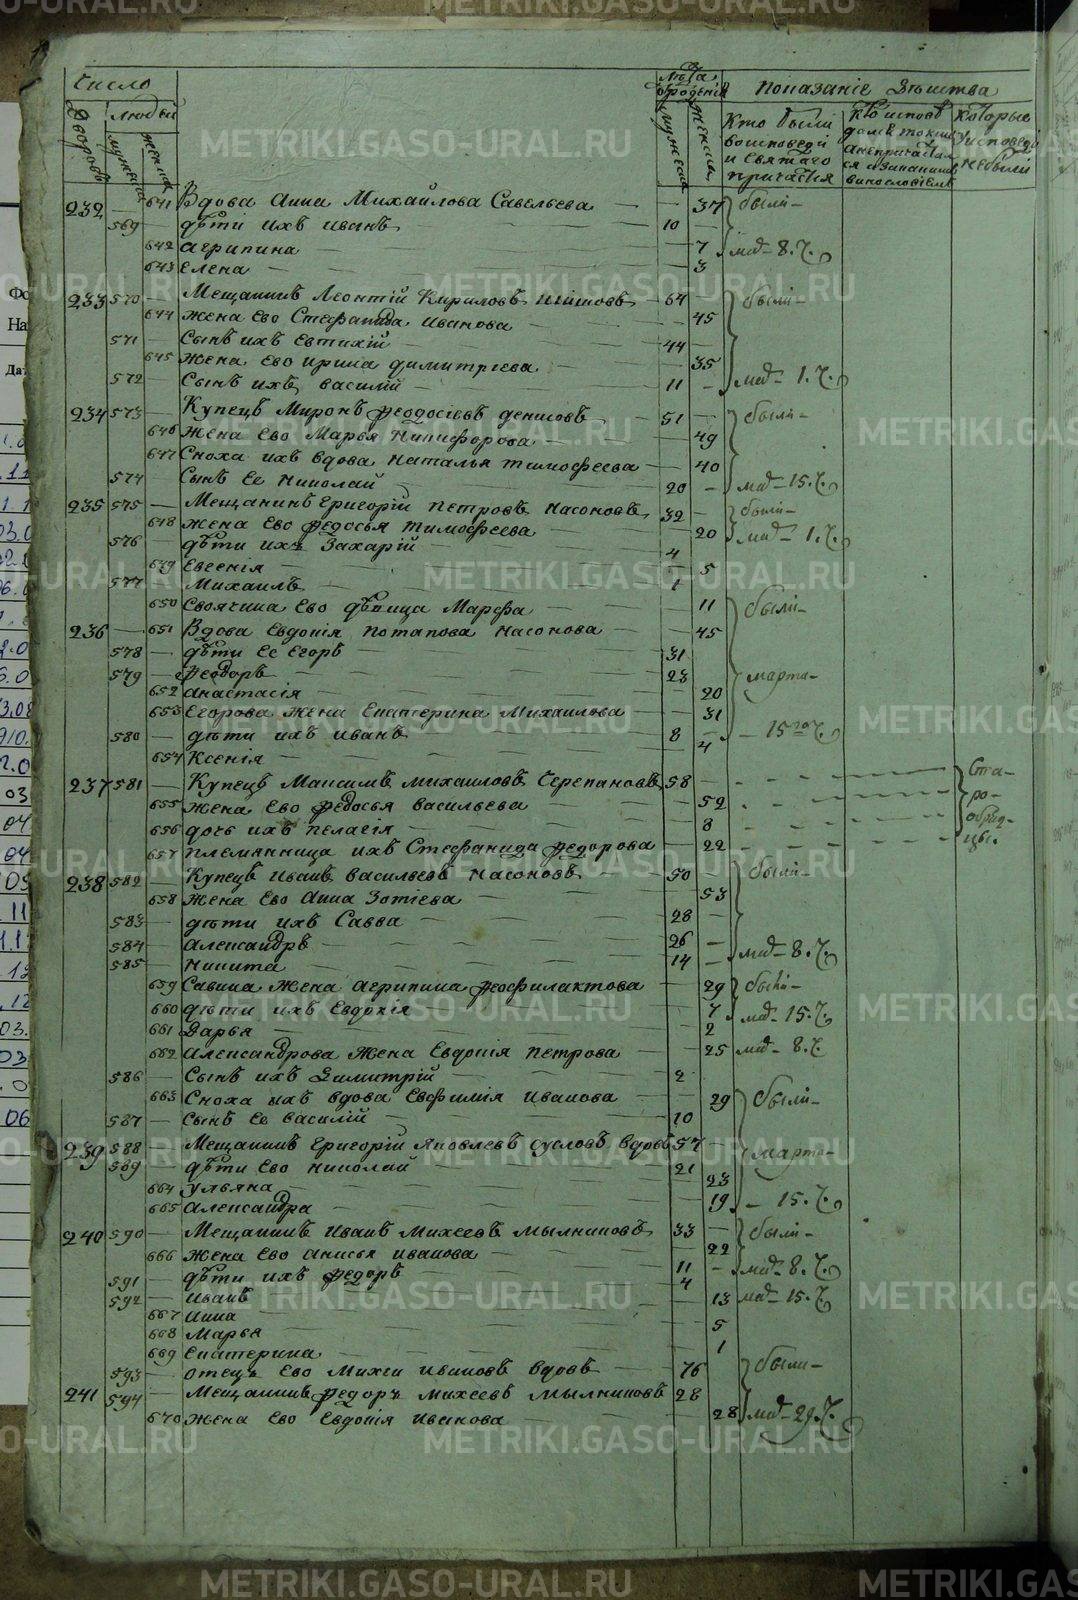 Число
Лѣта
от рожденія
Показаніе
Дворовъ
Людей
мужеска
женска
мужеска
женска
Кто были
во исповеди
и святаго
причастія
которые
у исповеди
небыли
232 — 641 Вдова Анна Михайлова Савельева — 37 были
569 — дѣти ихъ Иванъ 10
642 Агрипина 7 мар. 8. ч.
643 Елена 3
233 570 — Мещанинъ Леонтій Кириловъ 64 были
644 жена Ево Стефанида Иванова 45
571 — Сынъ ихъ Евтихій 44
645 жена Ево Ирина Димитріева 35
572 — Сынъ ихъ Василій 11 мар. 1. ч.
234 573 — Купецъ Миронъ Феодосіевъ Денисовъ 51 были
646 жена Ево Марья Никифорова 49
647 Сноха ихъ вдова Наталья Тимофеева 40
574 — Сынъ Ее Николай 20 мар. 15. ч.
235 575 — Мещанинъ Григорій Петровъ Насоновъ 32 были
648 жена Ево Федосья Тимофеева 20 мар. 1. ч.
576 — дѣти ихъ Захарій 4
649 Евгенія 5
577 — Михаилъ 1
650 Своячина Ево дѣвица Марфа 11 были
236 — 651 Вдова Евдокія Потапова Насонова 45
578 — дѣти Ее Егоръ 31
579 — Феодоръ 23 марта
652 Анастасія 20
653 Егорова жена Екатерина Михаилова 31
580 — дѣти ихъ Иванъ 8 — 15го ч.
654 Ксенія 4
237 581 — Купецъ Максимъ Михаиловъ Черепановъ 58 Ста-
655 жена Ево Федосья Васильева 52 ро-
656 дочь ихъ Пелагія 8 обряд-
657 племянница ихъ Стефанида Федорова 22 цы.
238 582 — Купецъ Иванъ Васильевъ Насоновъ 50 были
658 жена Ево Анна Зотіева 53
583 — дѣти ихъ Савва 28
584 — Александръ 26
585 — Никита 14 мар. 8. ч.
659 Савина жена Агрипина Феофилактова 29 были
660 дѣти ихъ Евдокія 7 мар. 15. ч.
661 Дарья 2
662 Александрова жена Евдокія Петрова 25 мар. 8. ч.
586 — Сынъ ихъ Димитрій 2
663 Сноха ихъ вдова Евфимія Иванова 29 были
587 — Сынъ Ее Василій 10
239 588 — Мещанинъ Григорій Яковлевъ Сусловъ вдовъ 57 марта
589 — дѣти Ево Николай 21
664 Ульяна 23
665 Александра 19 — 15. ч.
240 590 — Мещанинъ Иванъ Михеевъ Мыльниковъ 33 были
666 жена Ево Анисья Иванова 22
591 — дѣти ихъ Федоръ 11 мар. 8. ч.
592 — Иванъ 4
667 Анна 13 мар. 15. ч.
668 Марья 5
669 Екатерина 1
593 — отецъ Ево Михеи Ивановъ вдовъ 76 были
241 594 — Мещанинъ Федоръ Михеевъ Мыльниковъ 28
670 жена Ево Евдокія Иванова 28 мар. 29. ч.
METRIKI.GASO-URAL.RU